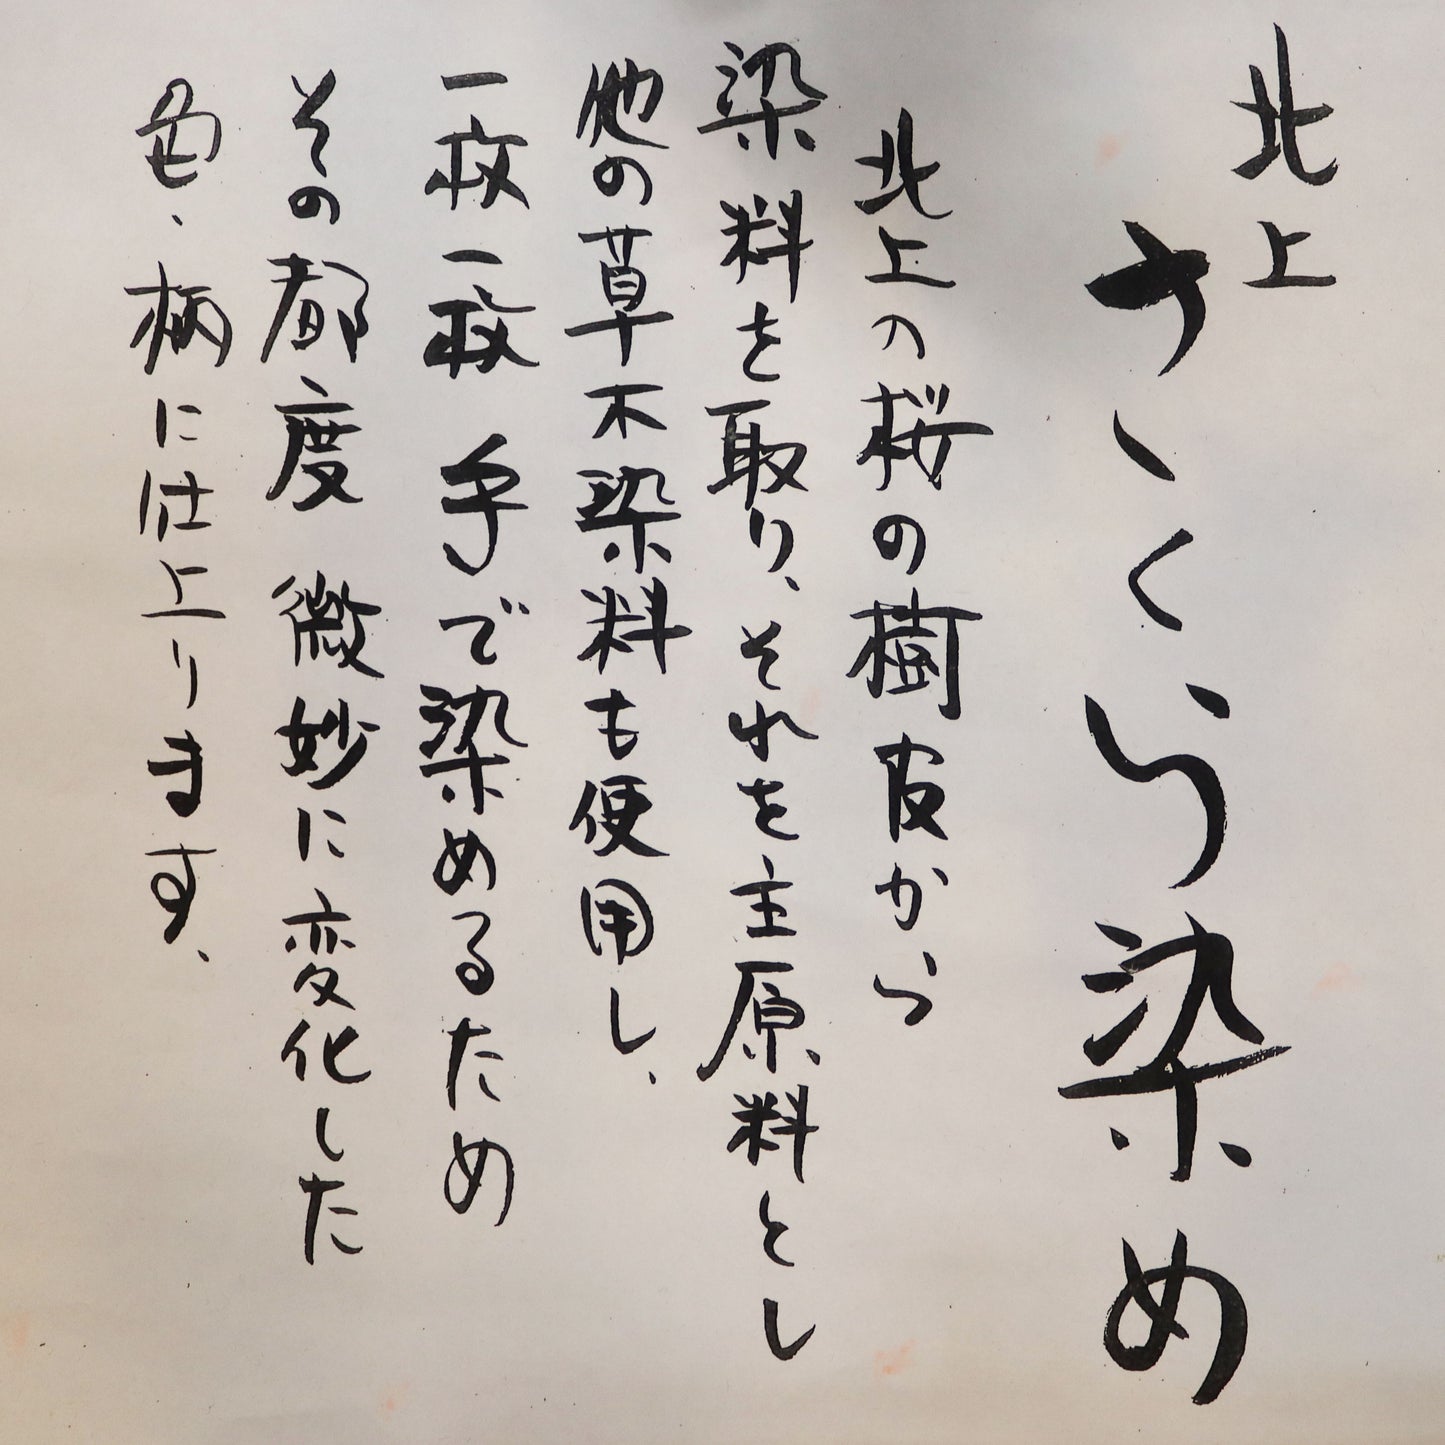 北上
さくら染め
北上の桜の樹皮から
染料を取り、それを主原料とし
他の草木染料も使用し、
一枚一枚手で染めるため
その都度微妙に変化した
色、柄に仕上ります、